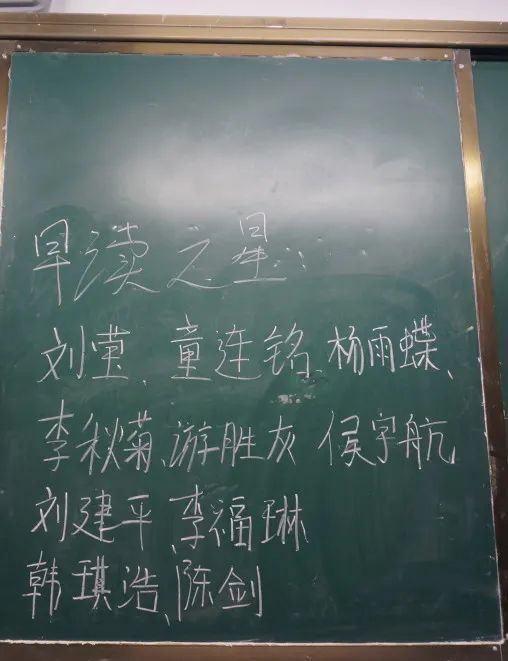 早读之星:
刘莹、童连铭、杨雨蝶、
李秋菊、游胜灰 侯宇航
刘建平、李福琳
韩琪浩、陈剑